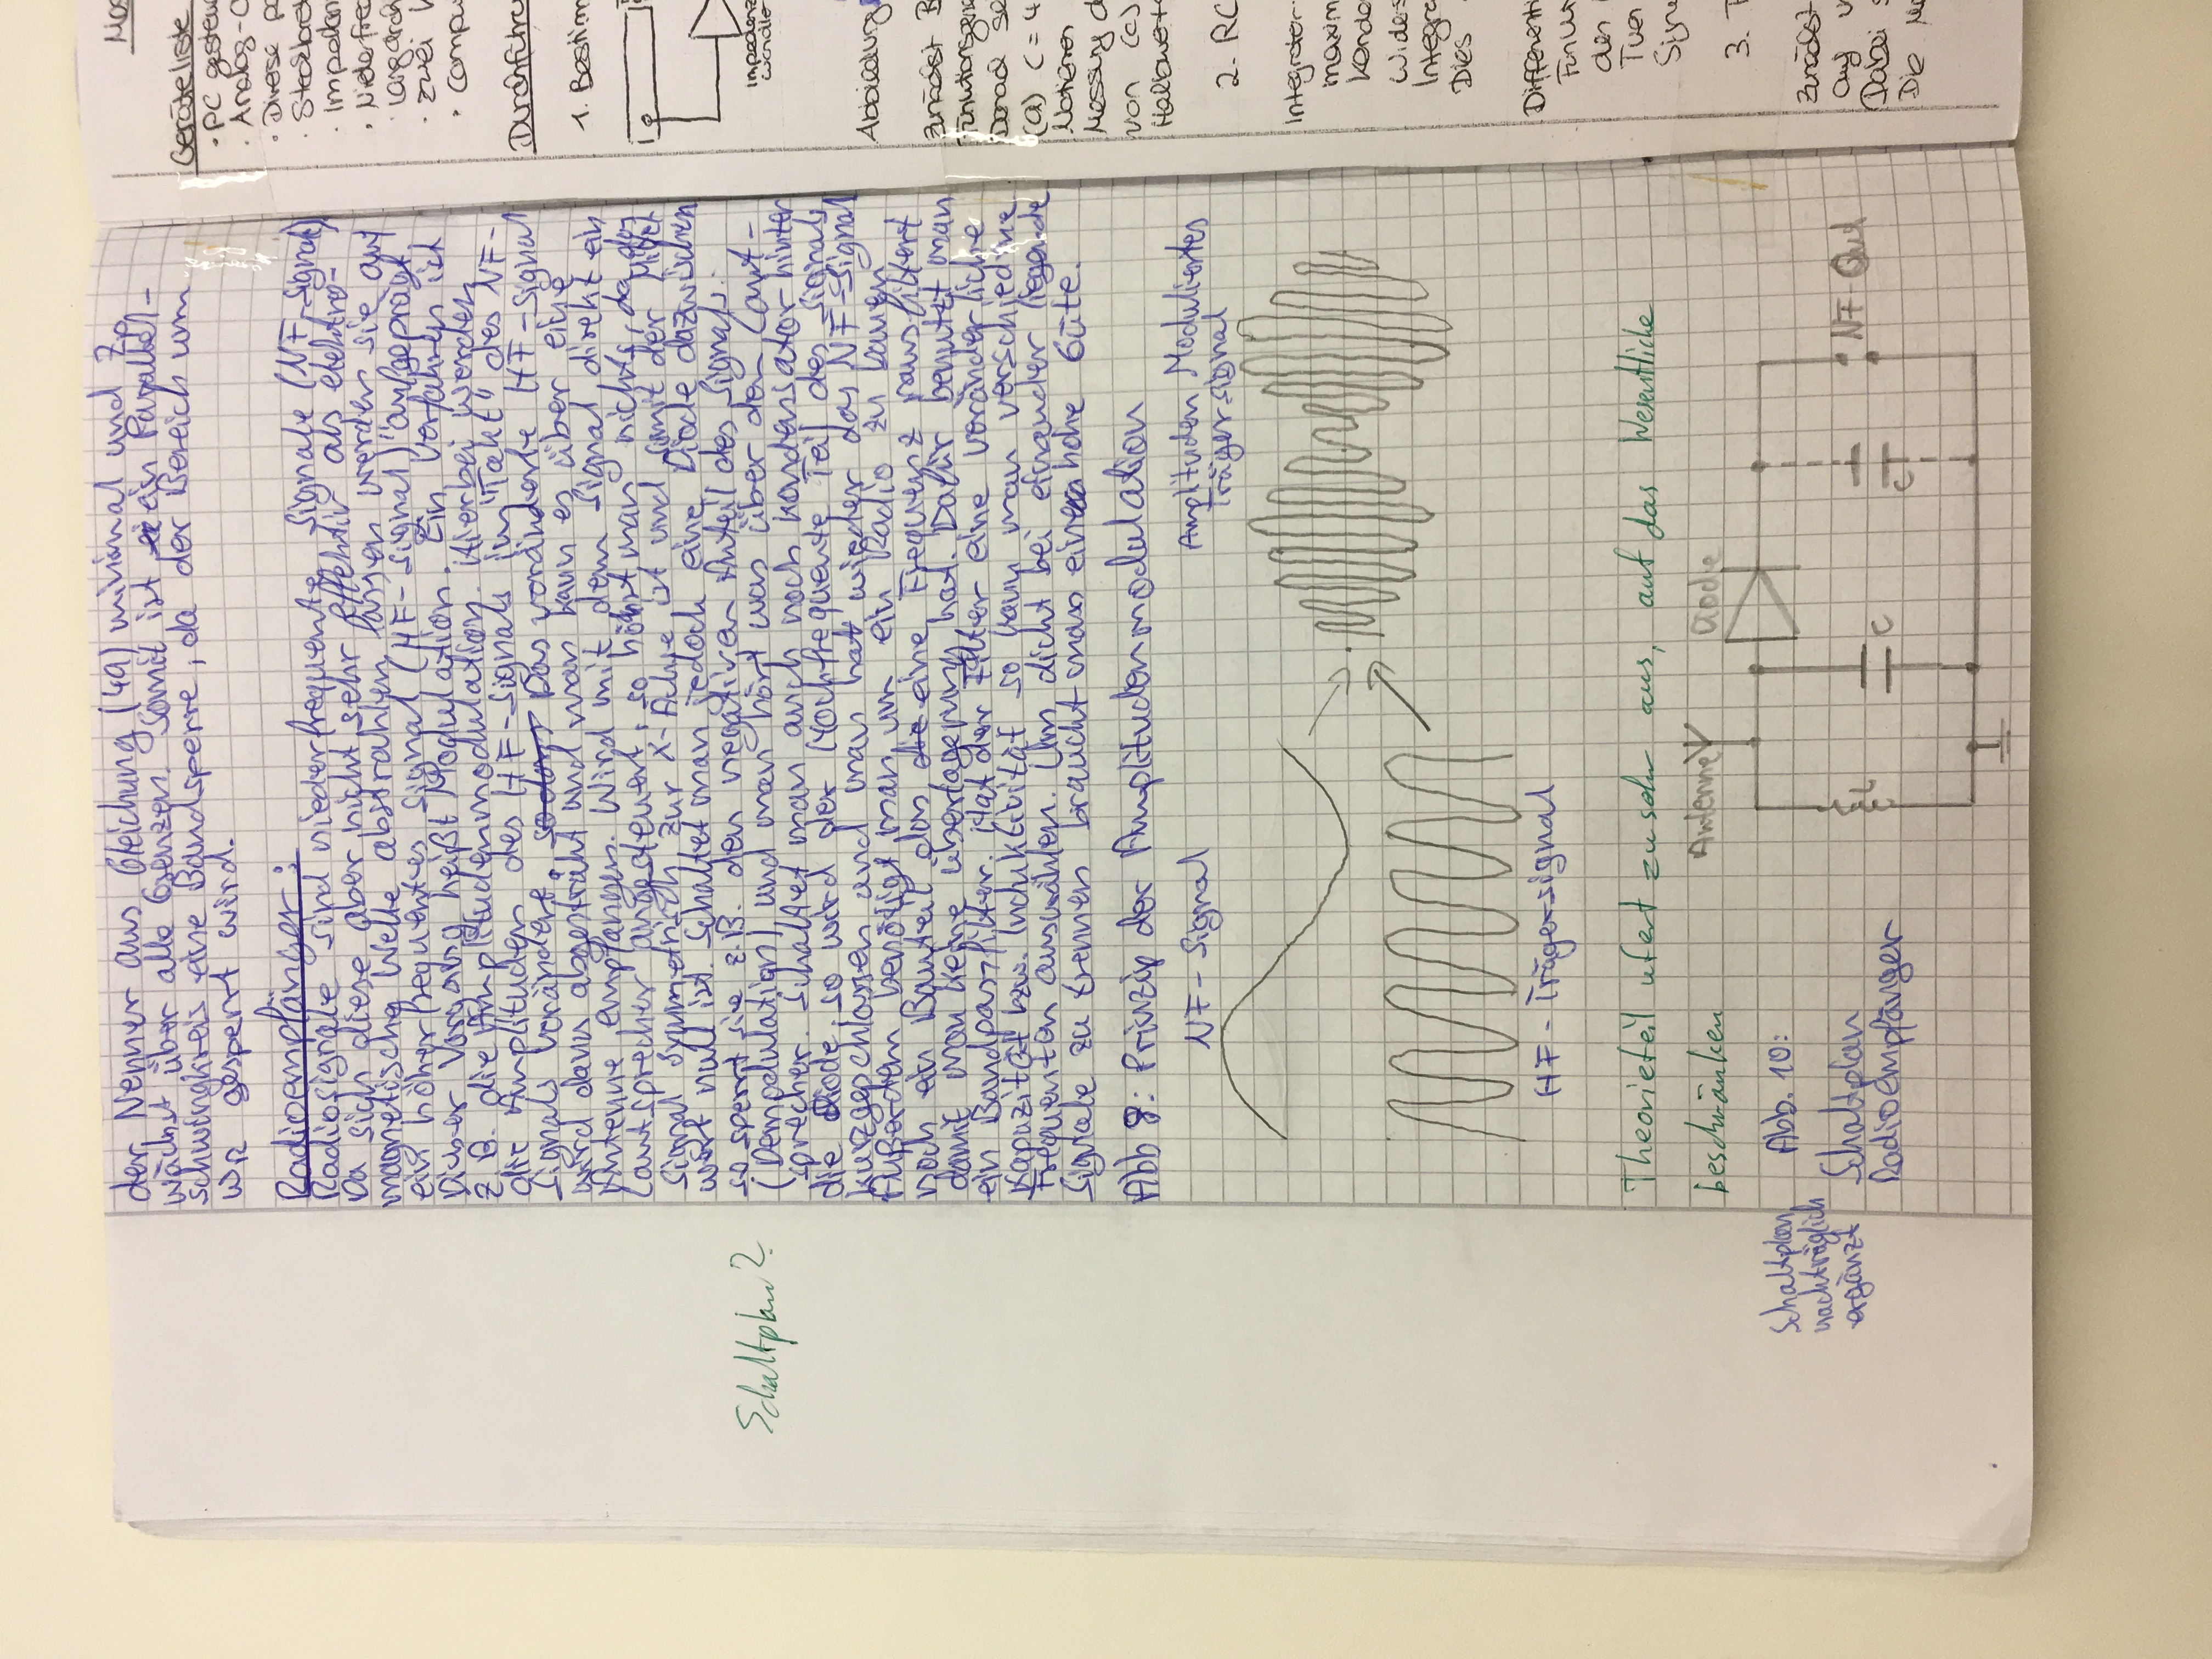 der Nenner aus Gleichung (4a) minimal und Zp
wächst über alle Grenzen. Somit ist ein Parallel-
schwingkreis eine Bandsperre, da der Bereich um
ωR gesperrt wird.
Radioempfänger:
Radiosignale sind niederfrequente Signale (NF-Signale)
Da sich diese aber nicht sehr effektiv als elektro-
magnetische Welle abstrahlen lassen werden sie auf
ein höherfrequentes Signal (HF-Signal) "aufgeprägt"
Dieser Vorgang heißt Modulation. Ein Verfahren ist
z.B. die Amplitudenmodulation. Hierbei werden
die Amplituden des HF-Signals im "Takt" des NF-
Signals verändert. sodass Das veränderte HF-Signal
wird dann abgestrahlt und man kann es über eine
Antenne empfangen. Wird mit dem Signal direkt ein
Lautsprecher angesteuert, so höhrt man nichts, da das
Signal symmetrisch zur X-Achse ist und somit der Mittel
wert null ist. Schaltet man jedoch eine Diode dazwischen
so sperrt sie z.B. den negativen Anteil des Signals.
Schaltplan?
(Demodulation) und man hört was über den Laut-
sprecher. Schaltet man auch noch Kondensator hinter
die Diode, so wird der Hochfrequente Teil des Signals
kurzgeschlossen und man hat wieder das NF-Signal
Außerdem benötigt man um ein Radio zu bauen
noch ein Bauteil das die eine Frequenz rausfiltert
damit man keine überlagerung hat. Dafür benutzt man
ein Bandpassfilter. Hat der Filter eine veränderliche
Kapazität bzw. Induktivität so kann man verschiedene
Frequenten auswählen. Um dicht bei einander liegende
Signale zu trennen braucht man eine hohe Güte.
Abb 8: Prinzip der Amplitudenmodulation
NF-Signal
Amplituden Moduliertes
Trägersignal
HF-Trägersignal
Theorieteil ufert zu sehr aus, auf das Wesentliche
beschränken
Antenne
Diode
Schaltplan
nachträglich
ergänzt
Abb. 10:
Schaltplan
Radioempfänger
L
C
C
NF-Out
Geräteliste
· PC
· Analog-
· Diverse
· Steckbret
· Impedan
· Niederfre
· zwei
· Compu
Durchführu
1. Bestim
Impedanz
wandle
Abbildung
Zunächst B
Funktionsgene
(a) C = 4
Notieren
Messung d
von (c)
Halbwert
2. RC
Integrator-
maxim
Konde
Wider
Integra
Dies
Differenti
den
Sign
3.
Zunächst
auf
Dabei s
Die